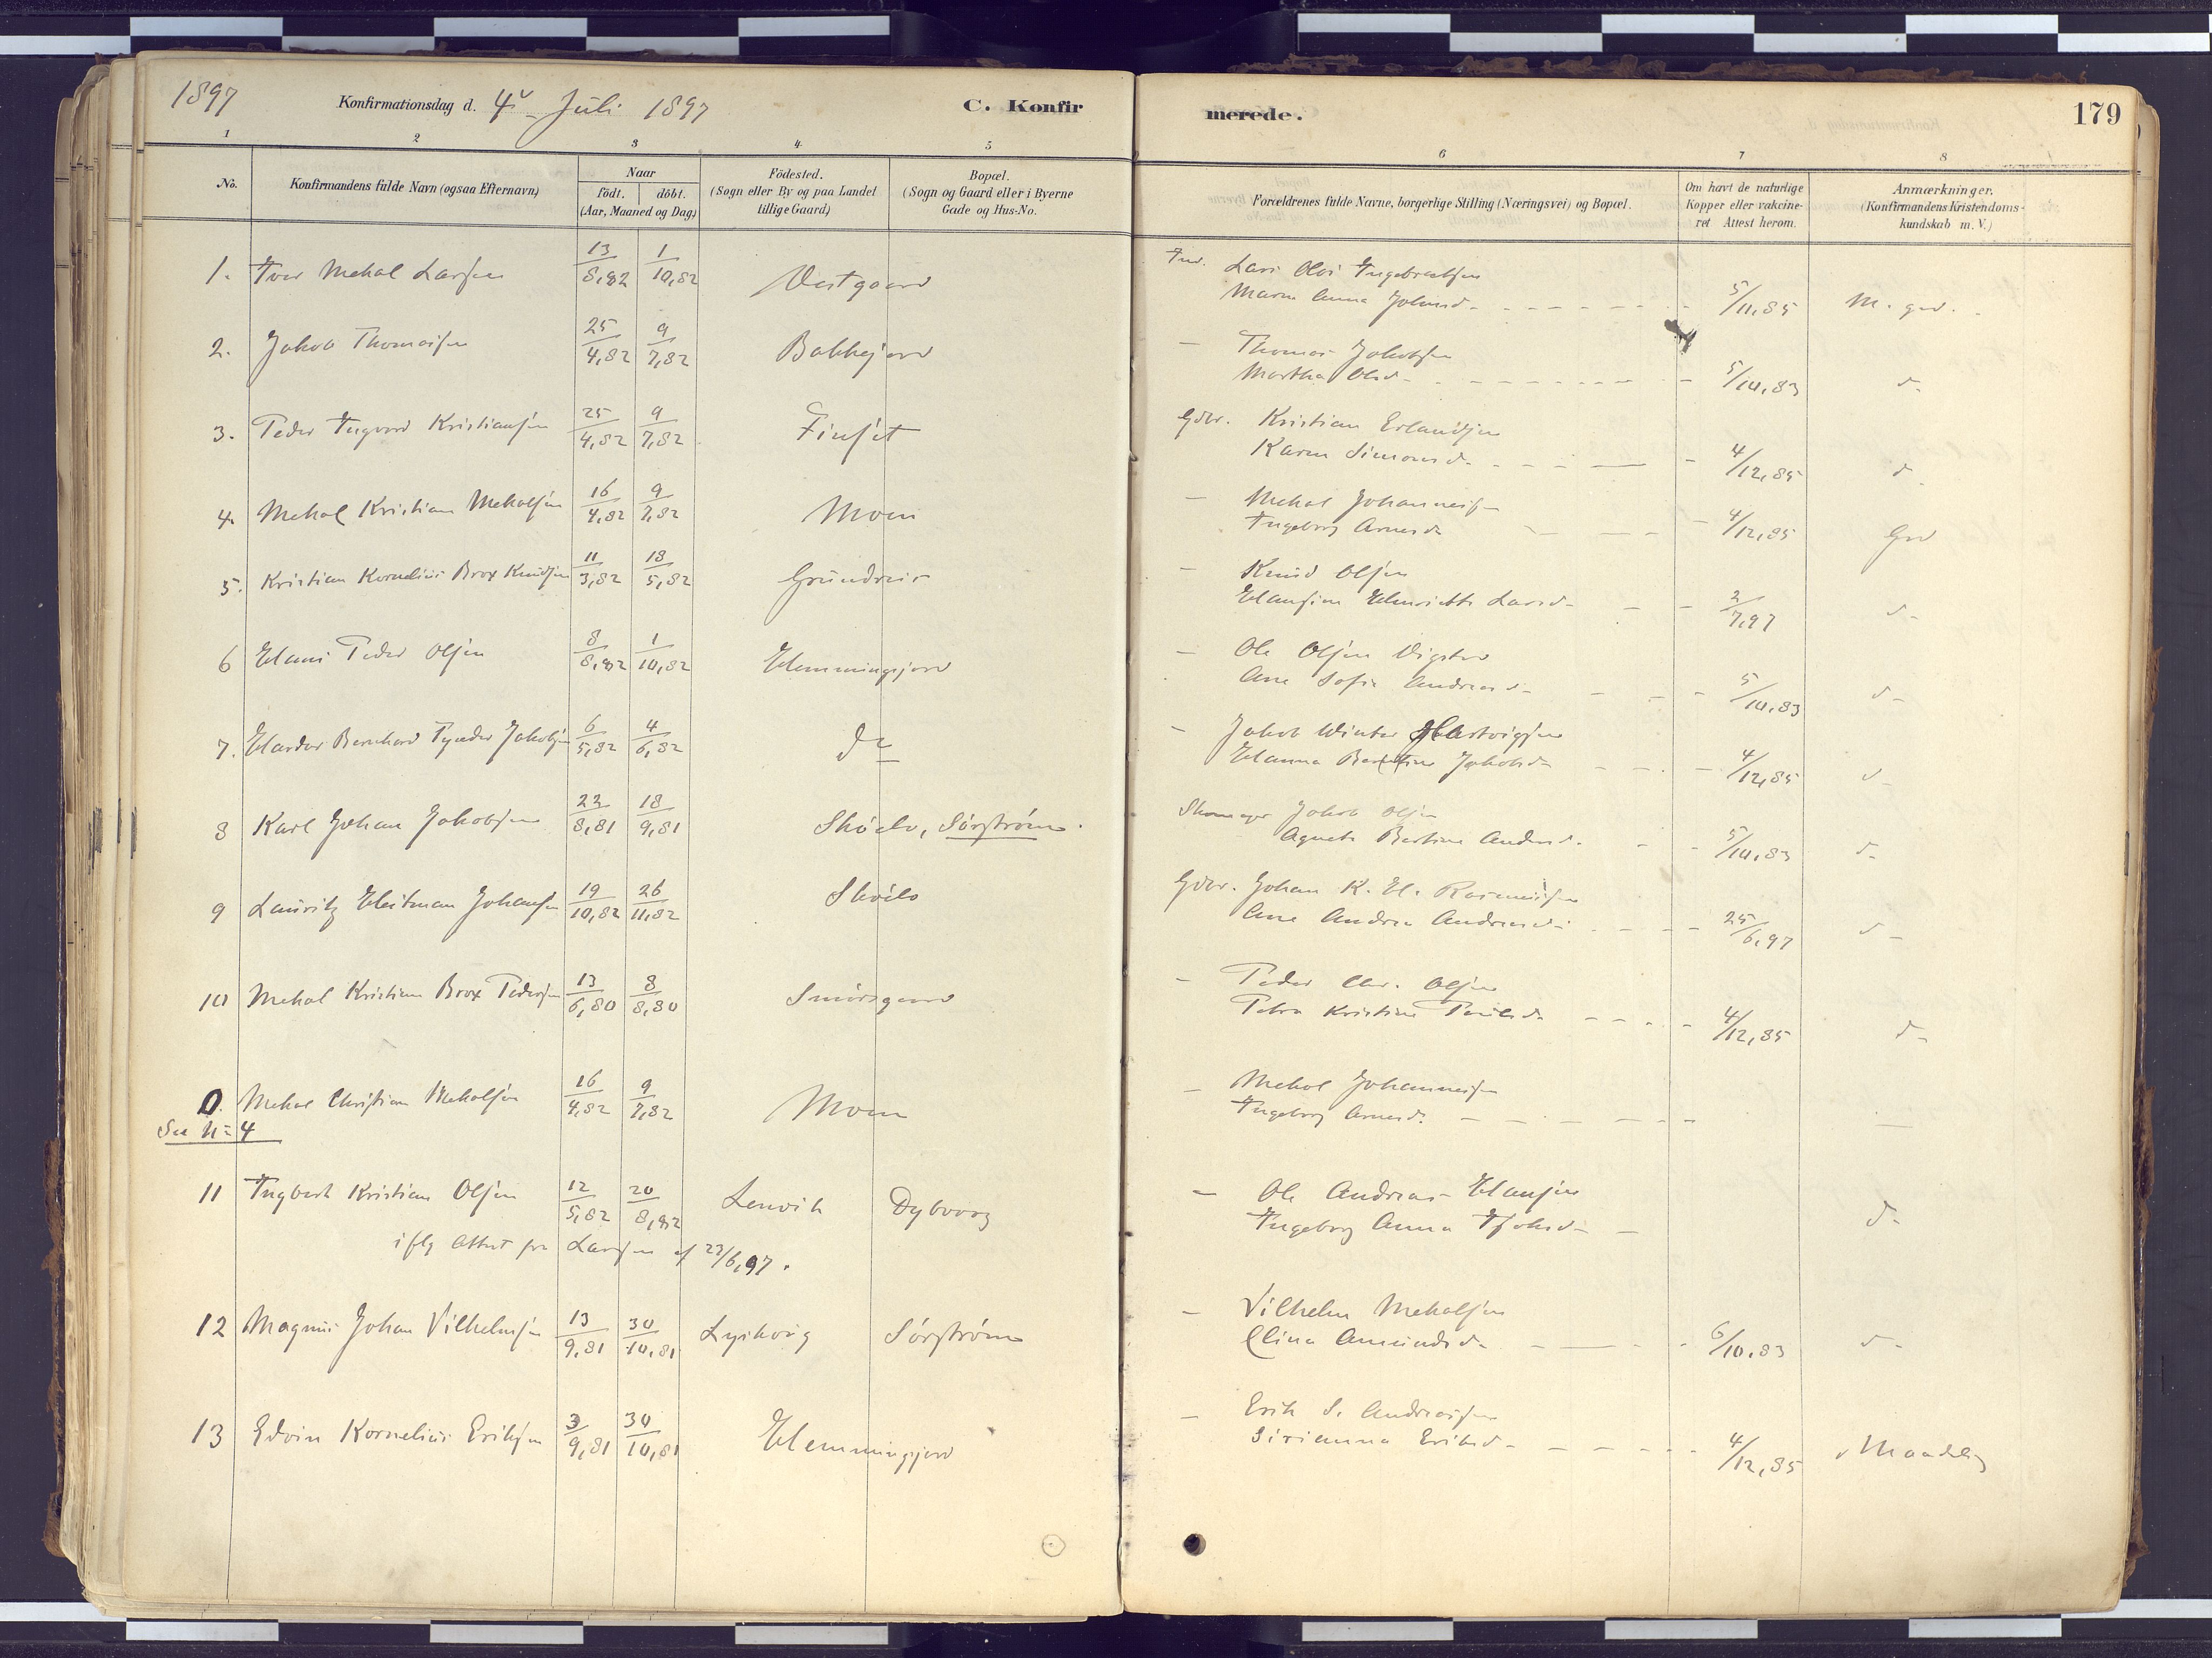 1897 Konfirmationsdag d. 4 Juli 1897 C. Konfirmerede. 179
1 2 3 4 5 6 7 8
No. Konfirmandens fulde Navn (ogsaa Efternavn) Naar födt. döbt. (Aar, Maaned og Dag) Födested. (Sogn eller By og paa Landet tillige Gaard) Bopæl. (Sogn og Gaard eller i Byerne Gade og Hus-No. Forældrenes fulde Navne, borgerlige Stilling (Næringsvei) og Bopæl. Om havt de naturlige Kopper eller vakcineret Attest herom. Anmærkninger. (Konfirmandens Kristendomskundskab m. V.)
1. Ivar Mekal Larsen 13/8,82 1/10,82 Vestgaard Lars Olai Ingebrigtsen
Maren Anna Johansd. 5/11,85 M. god.
2. Jakob Thomassen 25/4,82 9/7,82 Bakkejord — Thomas Jakobsen
Martha Olsd. 5/10,83 d-
3. Peder Ingvard Kristiansen 25/4,82 9/7,82 Finset Gdbr. Kristian Erlandsen
Karen Simonsd. 4/12,85 d-
4. Mekal Kristian Mekalsen 16/4,82 9/7,82 Moen — Mekal Johannessen
Ingeborg Arnesd. 4/12,85 God
5. Kristian Kornelius Brox Knudsen 11/3,82 18/5,82 Grundreis — Knud Olsen
Hansine Henriette Larsd. 2/7,97 d-
6 Hans Peder Olsen 8/8,82 1/10,82 Hemmingsjord — Ole Olsen Vigstad
Ane Sofie Andreasd. 5/10,83 d-
7. Hardar Bernhard Jakobsen 6/5,82 4/6,82 do — Jakob Winter Hartvigsen
Hanna Jakobsd. 4/12,85 d-
8 Karl Johan Jakobsen 22/8,81 18/9,81 Skóelv, Sørstrøm. Skomager Jakob Olsen
Agnete Bertine Andersd. 5/10,83 d-
9 Lauritz Heitman Johansen 19/10,82 26/11,82 Skóelv Gdbr. Johan K. H. Rasmussen
Ane Andrea Andreasd. 25/6,97 d-
10 Mekal Kristian Brox Pedersen 13/6,80 8/8,80 Smørsgaard — Peder Chr. Olsen
Petra Kristine Paulsd. 4/12,85 d-
0. Mekal Christian Mekalsen 16/4,82 9/7,82 Moen — Mekal Johannessen
See N= 4 Ingeborg Arnesd. —
11 Ingbert Kristian Olsen 12/5,82 20/8,82 Lenvik Dybvaag — Ole Andreas Hansen
iflg Attest fra Larsen af 23/6,97. Ingeborg Anna d-
12 Magnus Johan Vilhelmsen 13/9,81 30/10,81 Lysbotn Sørstrøm — Vilhelm Mekalsen
Elina Amundsd. 6/10,83 d-
13 Edvin Kornelius Eriksen 3/9,81 30/10,81 Hemmingsjord — Erik S. Andreassen
Sirianna Eriksd. 4/12,85 Maadelig